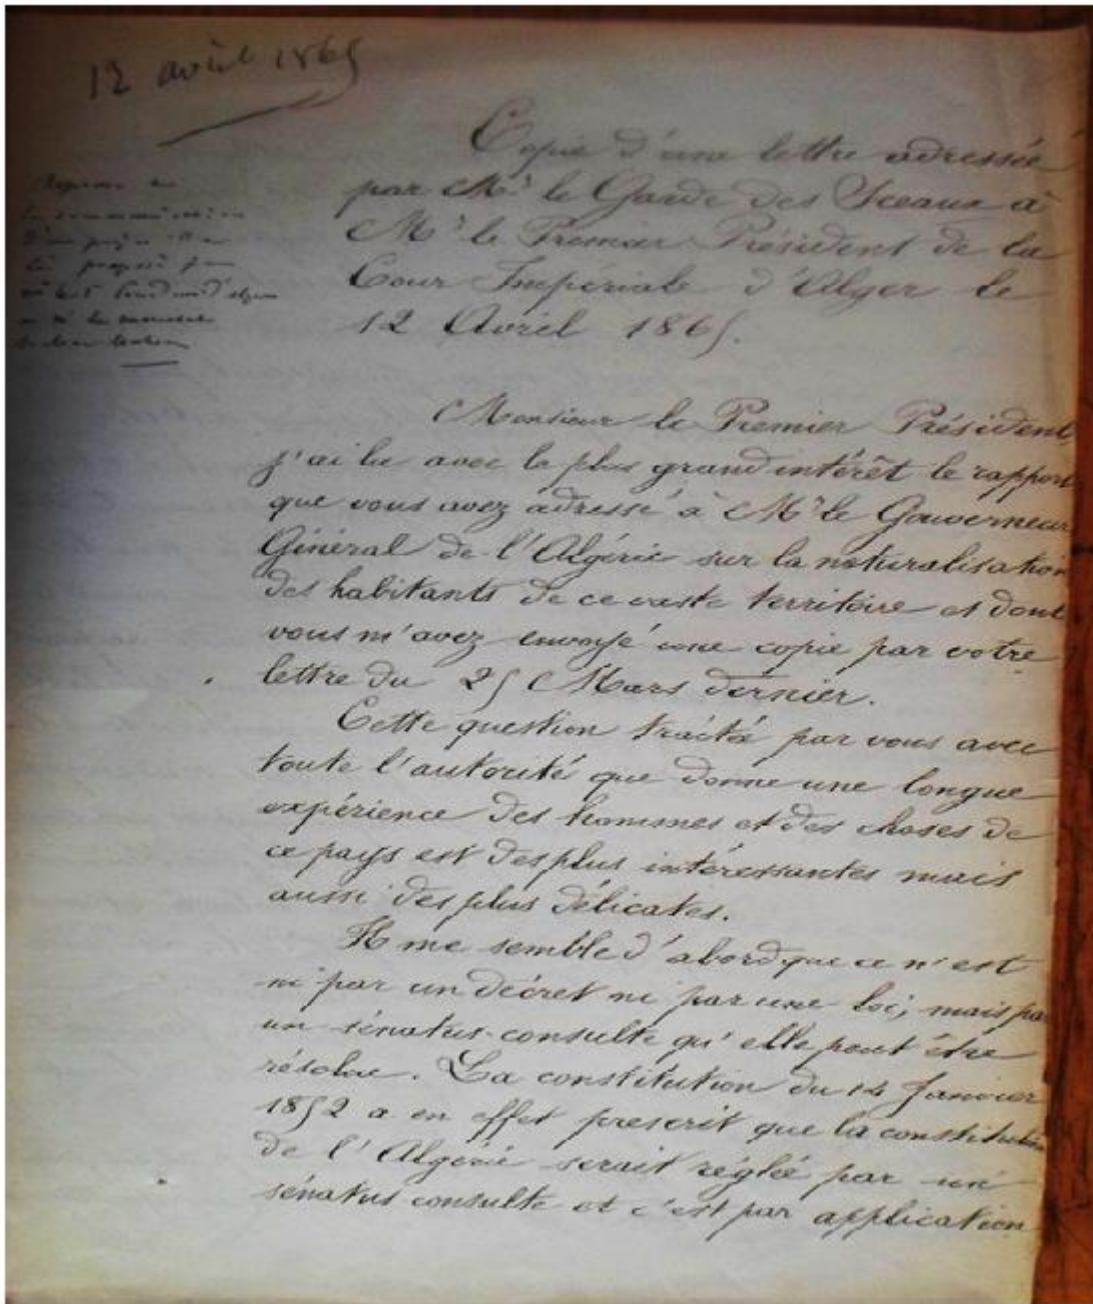 12 avril 1865
Copie d'une lettre adressée
par Mr le Garde des Sceaux à
Mr le Premier Président de la
Cour Impériale d'Alger le
12 Avril 1865.
Monsieur le Premier Président
j'ai lu avec le plus grand intérêt le rapport
que vous avez adressé à Mr le Gouverneur
Général de l'Algérie sur la naturalisation
des habitants de ce vaste territoire et dont
vous m'avez envoyé une copie par votre
lettre du 25 Mars dernier.
Cette question traitée par vous avec
toute l'autorité que donne une longue
expérience des hommes et des choses de
ce pays est des plus intéressantes mais
aussi des plus délicates.
Il me semble d'abord que ce n'est
ni par un décret ni par une loi, mais par
un sénatus-consulte qu'elle peut être
résolue. La constitution du 14 Janvier
1852 a en effet prescrit que la constitution
de l'Algérie serait réglée par un
sénatus consulte et c'est par application